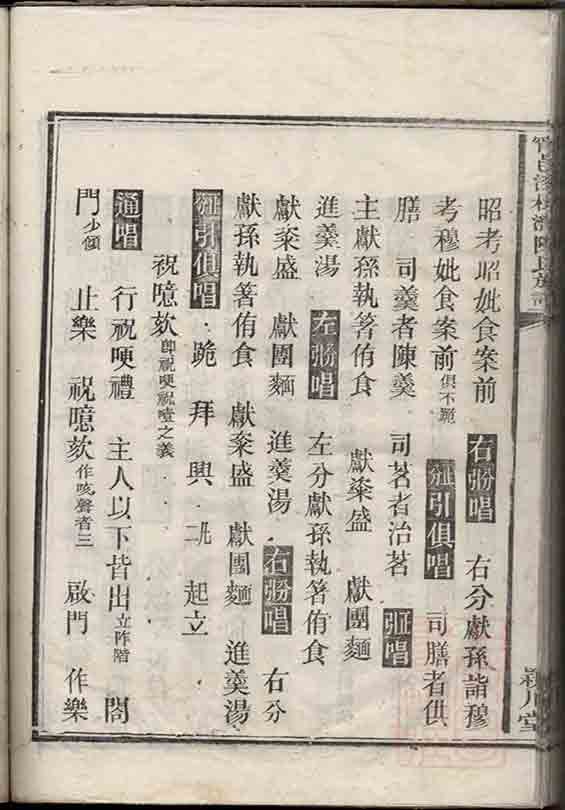 昭考昭妣食案前 右弼唱 右分獻孫詣穆
考穆妣食案前俱不跪 引俱唱 司膳者供
膳 司羹者陳羹 司茗者治茗 唱
主獻孫執箸侑食 獻粢盛 獻團麵
進羹湯 左弼唱 左分獻孫執箸侑食
獻粢盛 獻團麵 進羹湯 右弼唱 右分
獻孫執箸侑食 獻粢盛 獻團麵 進羹湯
引俱唱 跪 拜 興 起立
祝噫欬卽祝哽祝噎之義
通唱 行祝哽禮 主人以下皆出立阼階 閤
門少傾 止樂 祝噫欬作咳聲者三 啟門 作樂
潁川堂